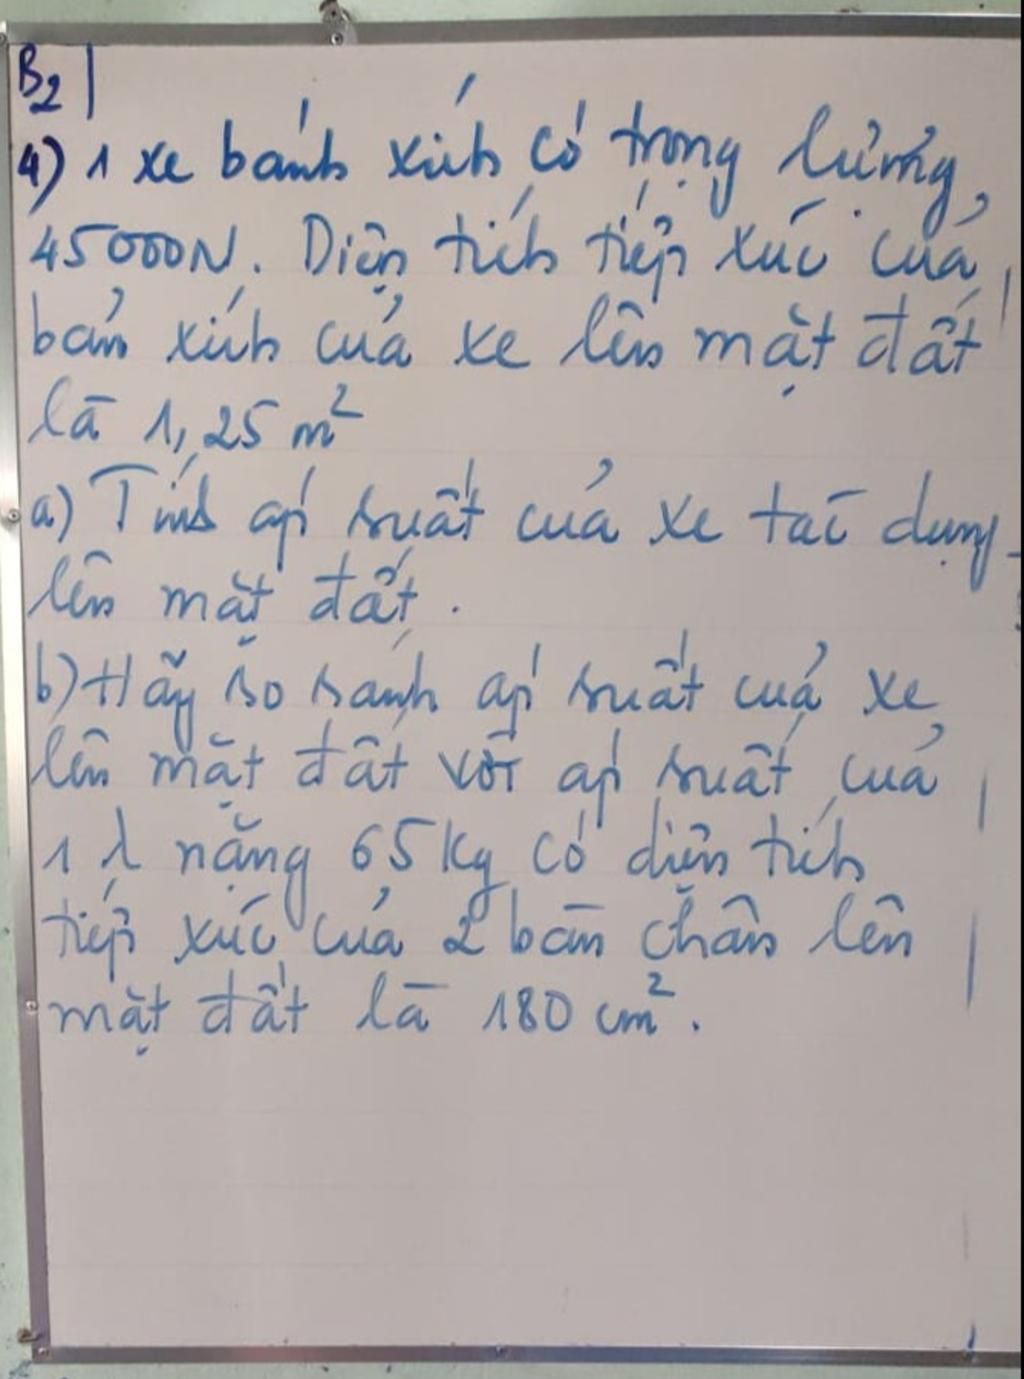 B2
4) 1 xe bánh xích có trọng lượng
45000N. Diện tích tiếp xúc của
bản xích của xe lên mặt đất
là 1,25 m²
a) Tính áp suất của xe tác dụng
lên mặt đất.
b) Hãy so sánh áp suất của xe
lên mặt đất với áp suất của
1 λ nặng 65kg có diện tích
tiếp xúc của 2 bàn chân lên
mặt đất là 180 cm².